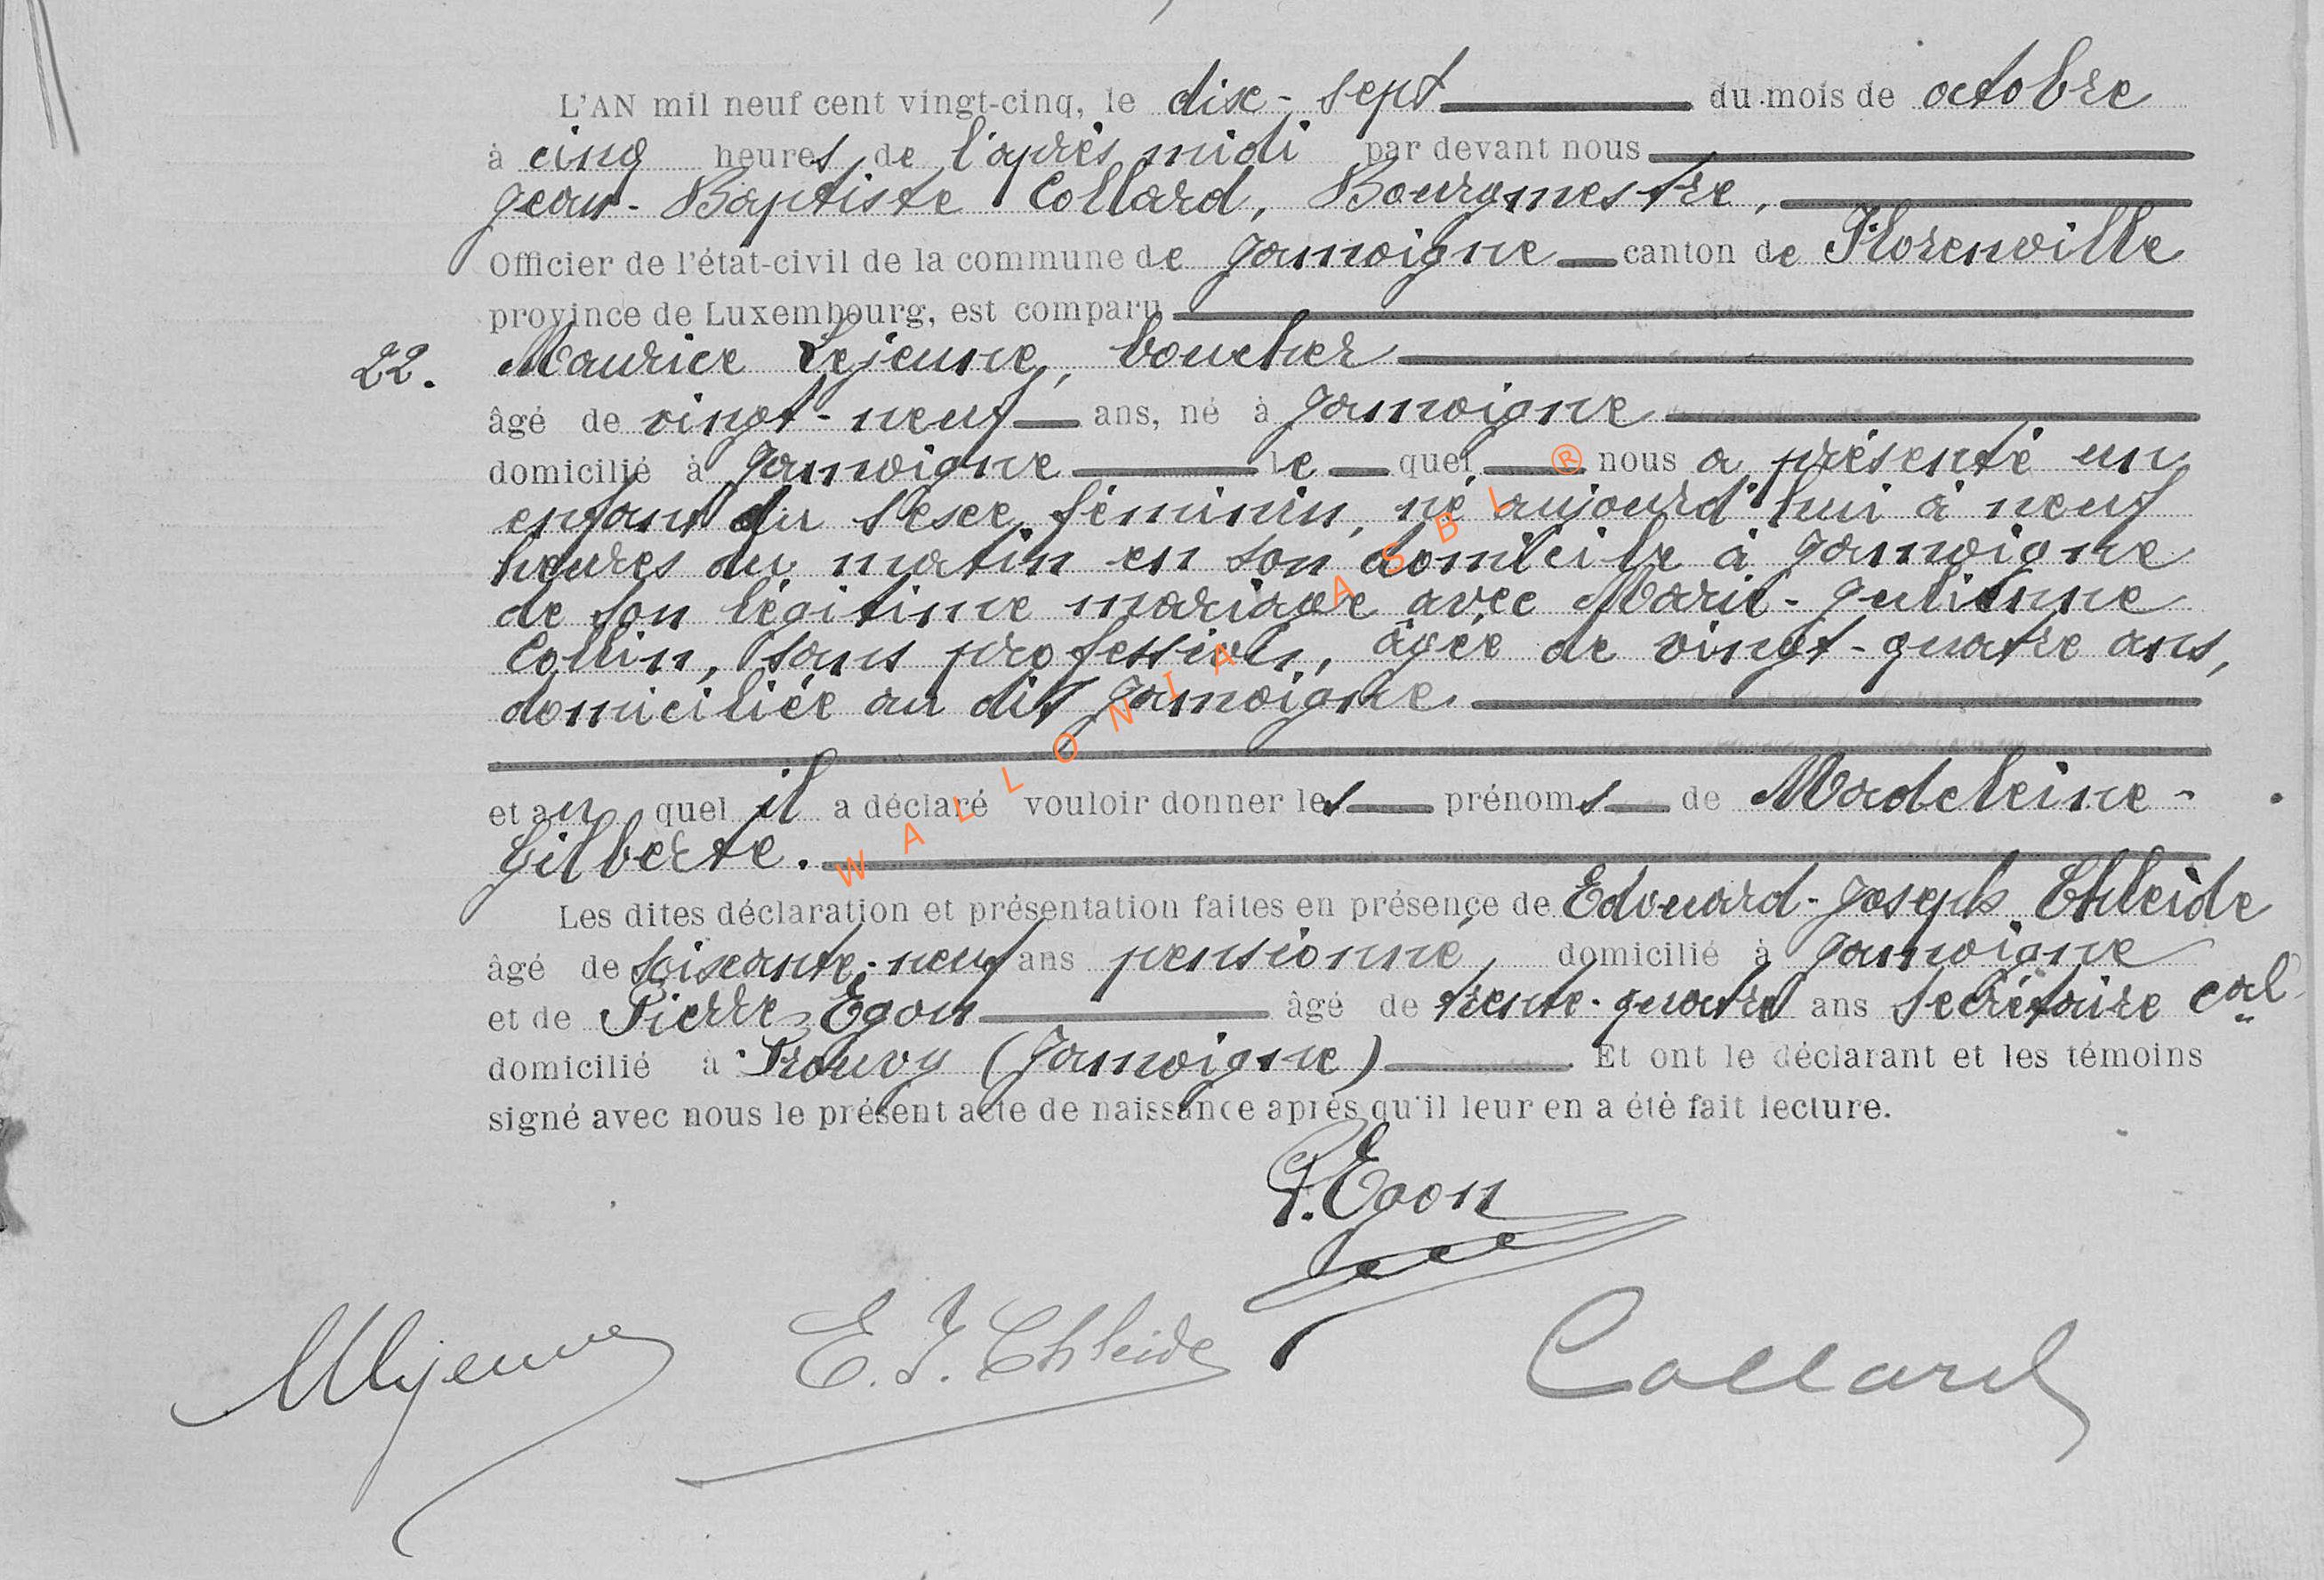 L'AN mil neuf cent vingt-cinq, le dix-sept du mois de octobre
à cinq heures de l'après midi par devant nous
Jean-Baptiste Collard, Bourgmestre,
Officier de l'état-civil de la commune de Jamoigne canton de Florenville
province de Luxembourg, est comparu
22. Maurice Lejeune, boucher
âgé de vingt-neuf ans, né à Jamoigne
domicilié à Jamoigne le quel nous a présenté un
enfant du sexe féminin, né aujourd'hui à neuf
heures du matin en son domicile à Jamoigne
de son légitime mariage avec Marie-Julienne
Collin, sans profession, âgée de vingt-quatre ans,
domiciliée au dit Jamoigne
et au quel il a déclaré vouloir donner les prénoms de Madeleine-
Gilberte.
Les dites déclaration et présentation faites en présence de Edouard-Joseph Chleide
âgé de soixante-neuf ans pensionné, domicilié à Jamoigne
et de Pierre Egon âgé de trente-quatre ans secrétaire cal
domicilié à Prouvy (Jamoigne) Et ont le déclarant et les témoins
signé avec nous le présent acte de naissance après qu'il leur en a été fait lecture.
P. Egon
MLejeune E. J. Chleide Collard
WALLONIA ASBL ®